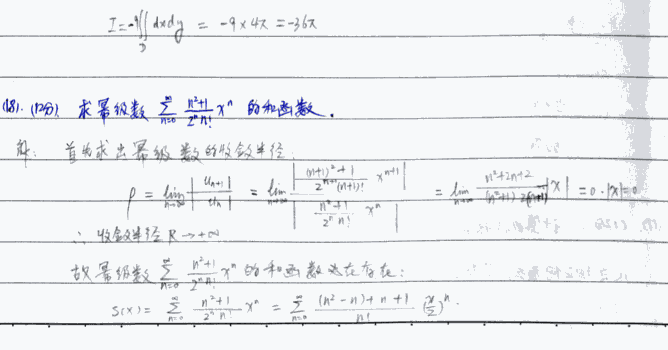 I=-9∬_D dxdy = -9×4π = -36π
(18). (12分) 求幂级数 ∑_{n=0}^{∞} \frac{n²+1}{2ⁿn!} xⁿ 的和函数.
解: 首先求出幂级数的收敛半径
ρ = lim_{n→∞} |\frac{u_{n+1}}{u_n}| = lim_{n→∞} \frac{|\frac{(n+1)²+1}{2^{n+1}(n+1)!} x^{n+1}|}{|\frac{n²+1}{2ⁿn!} xⁿ|} = lim_{n→∞} \frac{n²+2n+2}{(n²+1)2(n+1)} |x| = 0·|x|=0
∴ 收敛半径 R→+∞
故幂级数 ∑_{n=0}^{∞} \frac{n²+1}{2ⁿn!} xⁿ 的和函数存在:
S(x) = ∑_{n=0}^{∞} \frac{n²+1}{2ⁿn!} xⁿ = ∑_{n=0}^{∞} \frac{(n²-n)+n+1}{n!} (\frac{x}{2})ⁿ.